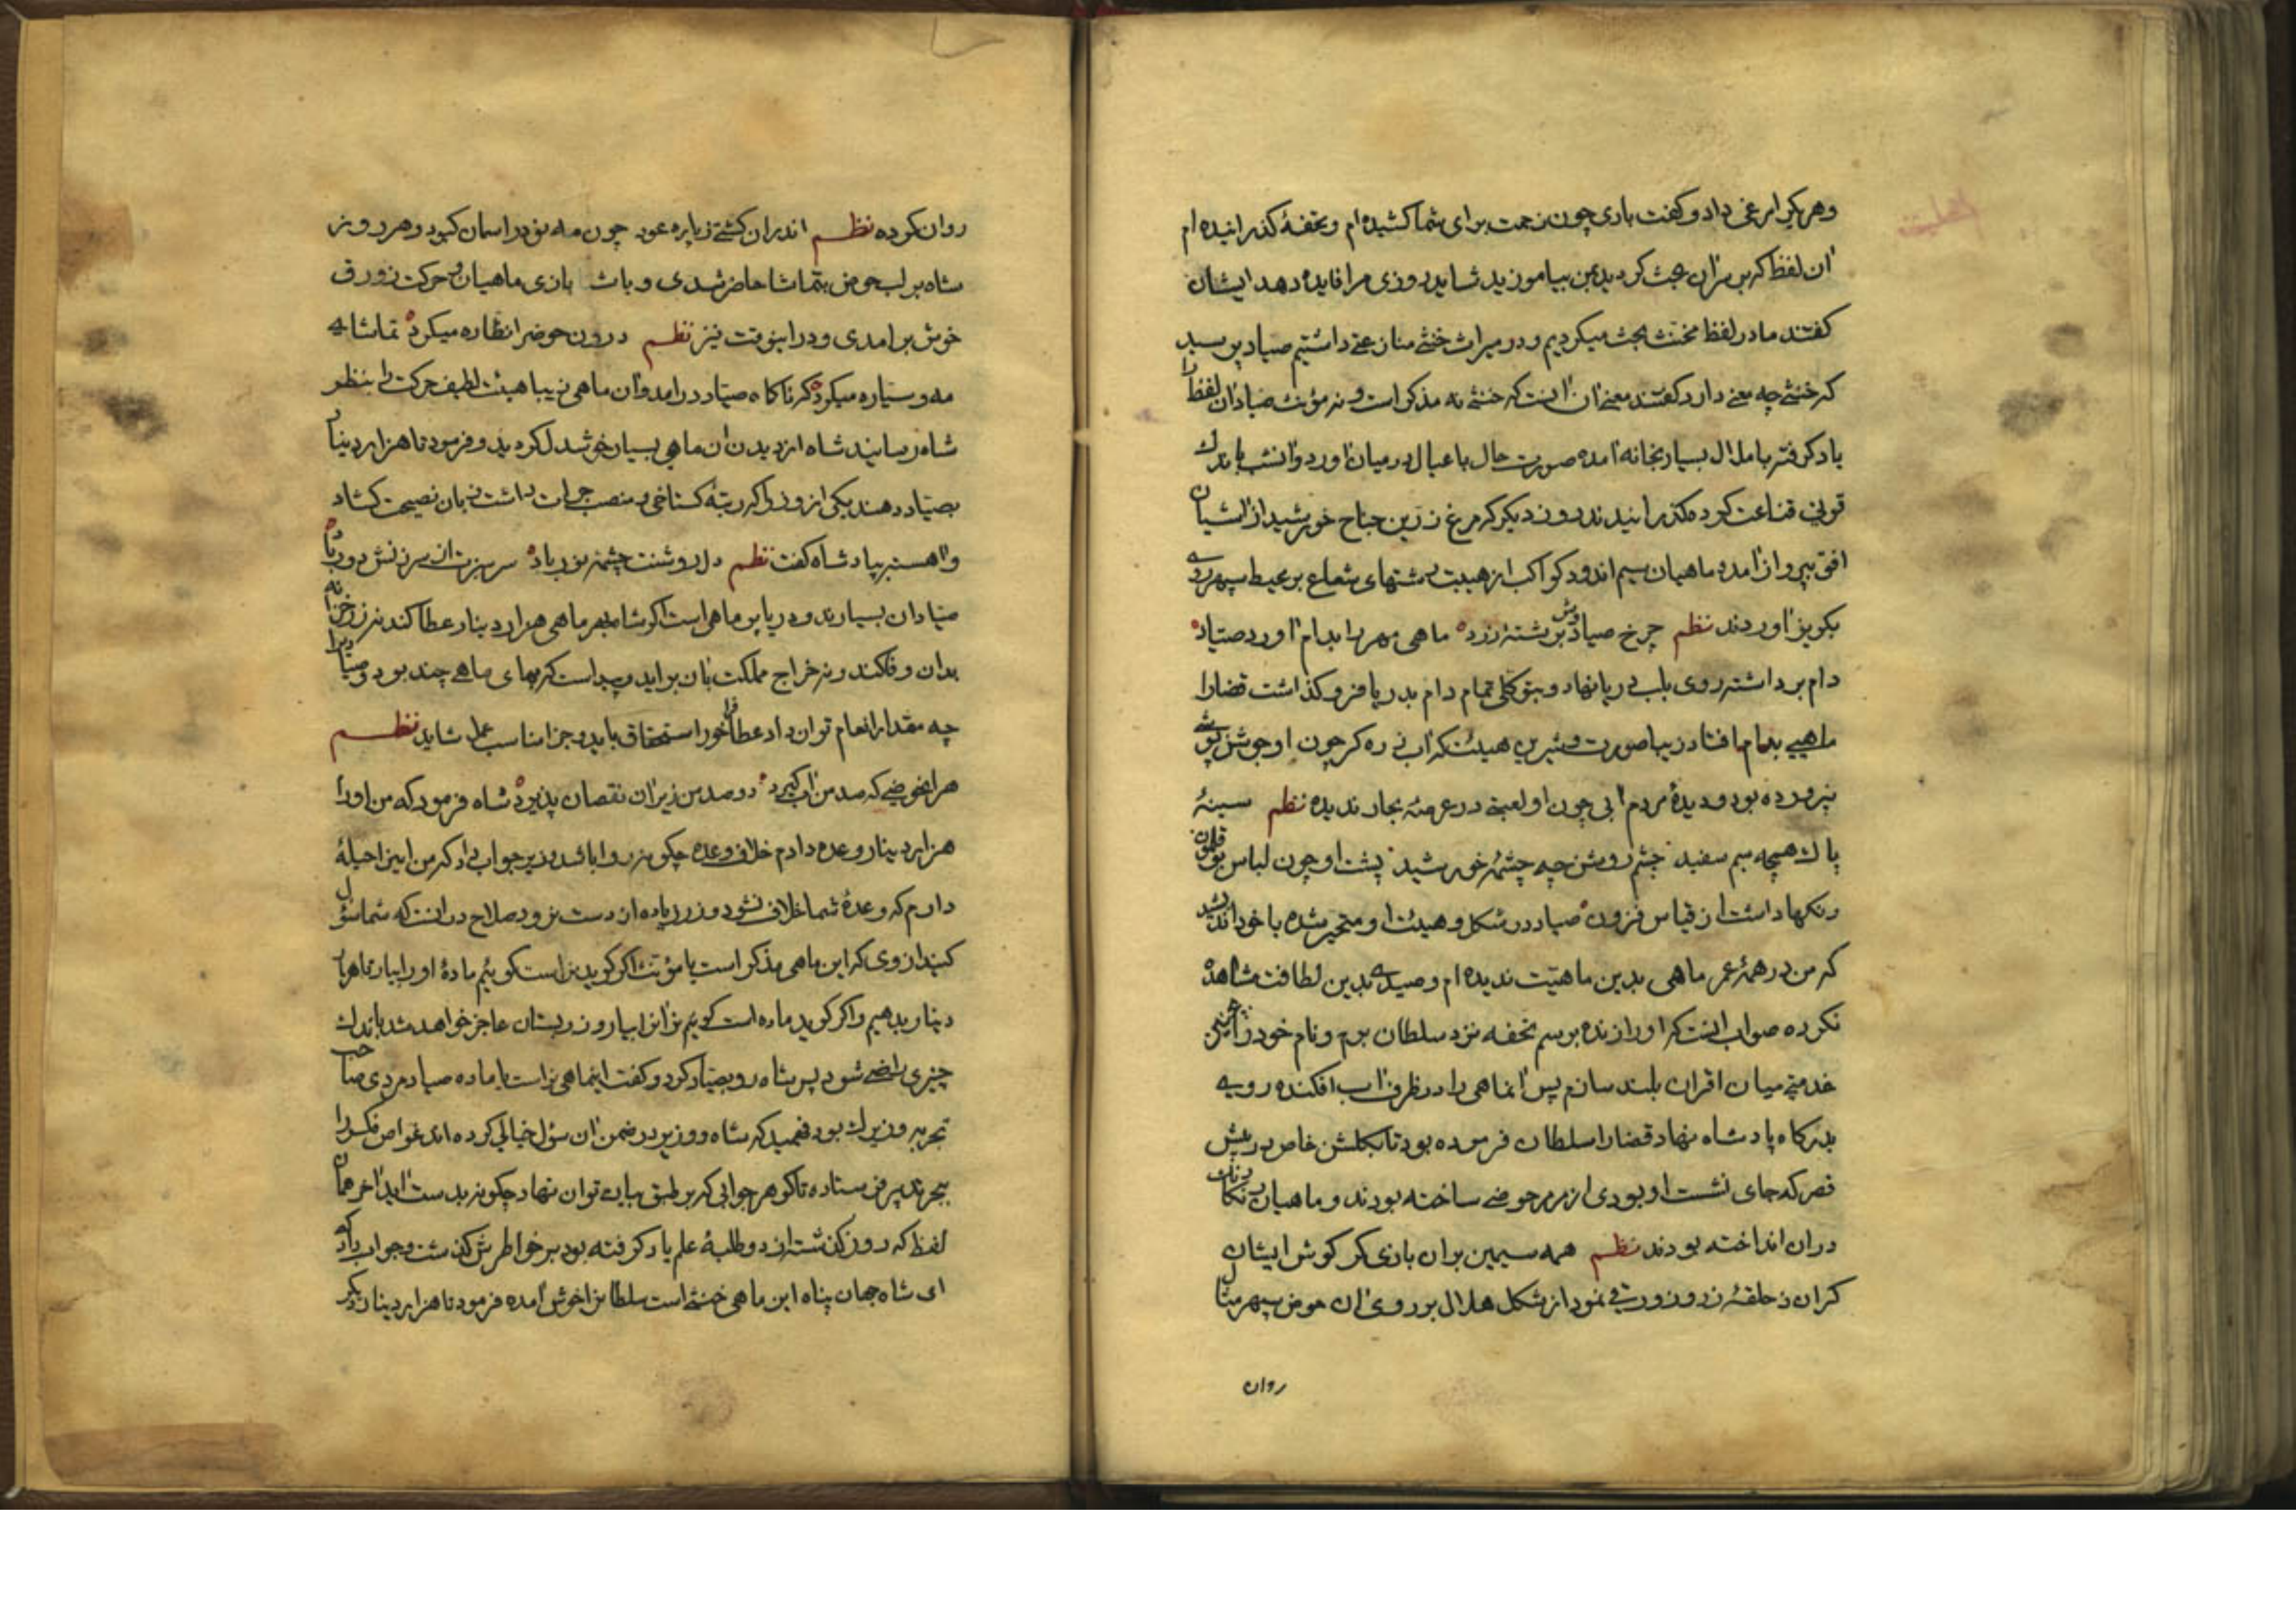 وهر یکی را مرغی داد و کفت باری چون زحمت برای شما کشیده ام و تحفهٔ کذرانیده ام
ان لفظ که بر سر ان بحث کردید بمن بیاموزید شاید روزی مرا فایده دهد ایشان
کفتند ما در لفظ مخنث بحث میکردیم و در میراث خنثی منازعتی داشتیم صیاد پرسید
که خنثی چه معنی دارد کفتند معنی ان انست که خنثی نه مذکر است و نه مؤنث صیاد ان لفظ را
یاد کرفته با ملال بسیار بخانه امده صورت حال با عیال در میان اورد و انشب باندك
قوتی قناعت کرده کذرانیدند روز دیکر که مرغ زرین جناح خورشید از اشیان
افق بپرواز امد و ماهیان سیم اندود کواکب از هیبت شستهای شعاع بر محیط سپهر روی
بکریز اوردند نظم چرخ صیاد وش بر شتهٔ زرد ماهی مهر را بدام اورد صیاد
دام برداشته روی بلب دریا نهاد و بتوکلی تمام دام بدریا فرو کذاشت قضارا
ماهیی بدام افتاد زیبا صورت و شیرین هیئت که اب زره کر چون او جوشن پوشی
نپرورده بود و دیدهٔ مردم ابی چون او لعبتی در عرصهٔ بحار ندیده نظم سینهٔ
پاك همچو سیم سفید چشم روشن چو چشمهٔ خورشید پشت او چون لباس بوقلمون
رنکها داشت از قیاس فزون صیاد در شکل و هیئت او متحیر شده با خود اندیشید
که من در همهٔ عمر ماهی بدین ماهیت ندیده ام و صیدی بدین لطافت مشاهده
نکرده صواب انست که او را زنده برسم تحفه نزد سلطان برم و نام خود را بچنین
خدمتی میان اقران بلند سازم پس ان ماهی را در ظرف اب افکنده روی به
بدرکاه پادشاه نهاد قضارا سلطان فرموده بود تا بکلشن خاص در پیش
قصر که جای نشست او بودی از مرمر حوضی ساخته بودند و ماهیان رنکارنك
در ان انداخته بودند نظم همه سیمین بران بازی کر کوش ایشان
کران ز حلقهٔ زر و زورقی نمودار شکل هلال بر روی ان حوض سپهر مثال
روان
روان کرده نظم اندران کشتی ز پاره عود چون مه نو در اسمان کبود و هر روز
شاه بر لب حوض بتماشا حاضر شدی و باث بازی ماهیان و حرکت زورق
خوش برامدی و در اینوقت نیز نظم درون حوض را نظاره میکرد تماشای
مه و سیاره میکرد که ناکاه صیاد درامد و ان ماهی زیبا هیئت لطیف حرکت را بنظر
شاه رسانید شاه از دیدن ان ماهی بسیار خوشدل کردید و فرمود تا هزار دینار
بصیاد دهند یکی از وزرا که رتبهٔ کستاخی و منصب جرات داشت زبان نصیحت کشاد
و اهسته بپادشاه کفت نظم دل روشنت چشمهٔ نور باد سر سبزت از سرزنش دور باد
صیادان بسیارند و دریا پر ماهی است اکر شاه بهر ماهی هزار دینار عطا کند نه زر خزانه
بدان وفا کند و نه خراج مملکت بان براید پیداست که بهای ماهی چند بود و صیاد را
چه مقدار انعام توان داد عطا فراخور استحقاق باید و جزا مناسب عمل شاید نظم
هر انحوضی که صد من اب کیرد دو صد من زیر ان نقصان پذیرد شاه فرمود که من او را
هزار دینار وعده دادم خلاف وعده چکونه روا باشد وزیر جواب داد که من اینرا حیلهٔ
دارم که وعدهٔ شما خلاف نشود و زر زیاده از دست نرود صلاح در انست که شما سؤال
کنید از وی که این ماهی مذکر است یا مؤنث اکر کوید نر است کوئیم مادهٔ او را بیار تا هزار
دینار بدهیم و اکر کوید ماده است کوئیم نر انرا بیار و زر بستان عاجز خواهد شد باندك
چیزی راضی شود پس شاه رو بصیاد کرد و کفت اینماهی نر است یا ماده صیاد مردی صاحب
تجربه و زیرك بود فهمید که شاه و وزیر در ضمن ان سؤال خیالی کرده اند غواص فکر را
ببحر تدبیر فرستاده تا کوهر جوابی که بر طبق بیان توان نهاد چکونه بدست اید اخر همان
لفظ که روز کذشته از دو طلبهٔ علم یاد کرفته بود بر خواطرش کذشت و جواب داد که
ای شاه جهان پناه این ماهی خنثی است سلطانرا خوش امده فرمود تا هزار دینار دیکر